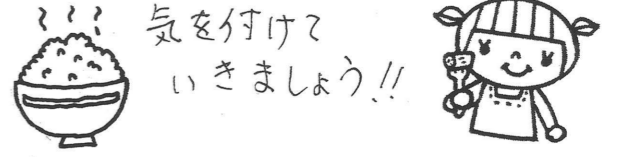 気を付けて
いきましょう!!